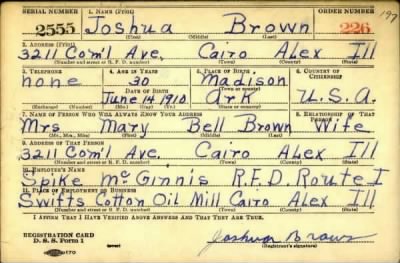 SERIAL NUMBER 1. NAME (Print) ORDER NUMBER 197
2555 Joshua Brown 226
(First) (Middle) (Last)
2. ADDRESS (Print)
3211 Com'l Ave. Cairo Alex Ill
(Number and street or R. F. D. number) (Town) (County) (State)
3. TELEPHONE 4. AGE IN YEARS 5. PLACE OF BIRTH 6. COUNTRY OF CITIZENSHIP
none 30 Madison
DATE OF BIRTH (Town or county)
June 14 1910 Ark. U.S.A.
(Exchange) (Number) (Mo.) (Day) (Yr.) (State or country)
7. NAME OF PERSON WHO WILL ALWAYS KNOW YOUR ADDRESS 8. RELATIONSHIP OF THAT PERSON
Mrs Mary Bell Brown Wife
(Mr., Mrs., Miss) (First) (Middle) (Last)
9. ADDRESS OF THAT PERSON
3211 Com'l Ave. Cairo Alex Ill
(Number and street or R. F. D. number) (Town) (County) (State)
10. EMPLOYER'S NAME
Spike McGinnis R.F.D. Route 1
11. PLACE OF EMPLOYMENT OR BUSINESS
Swifts Cotton Oil Mill Cairo Alex Ill
(Number and street or R. F. D. number) (Town) (County) (State)
I AFFIRM THAT I HAVE VERIFIED ABOVE ANSWERS AND THAT THEY ARE TRUE.
REGISTRATION CARD
D. S. S. Form 1
Joshua Brown
(Registrant's signature)